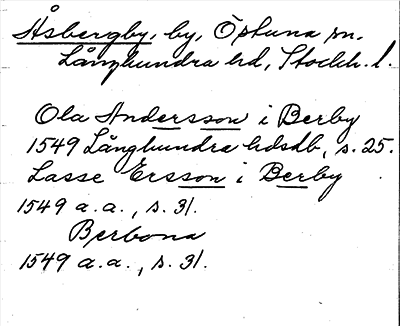 Åsbergby, by, Östuna sn.
Långhundra hd, Stockh. l.
Ola Andersson i Berby
1549 Långhundra hdsdb, s. 25.
Lasse Ersson i Berby
1549 a.a., s. 31.
Berbona
1549 a.a., s. 31.